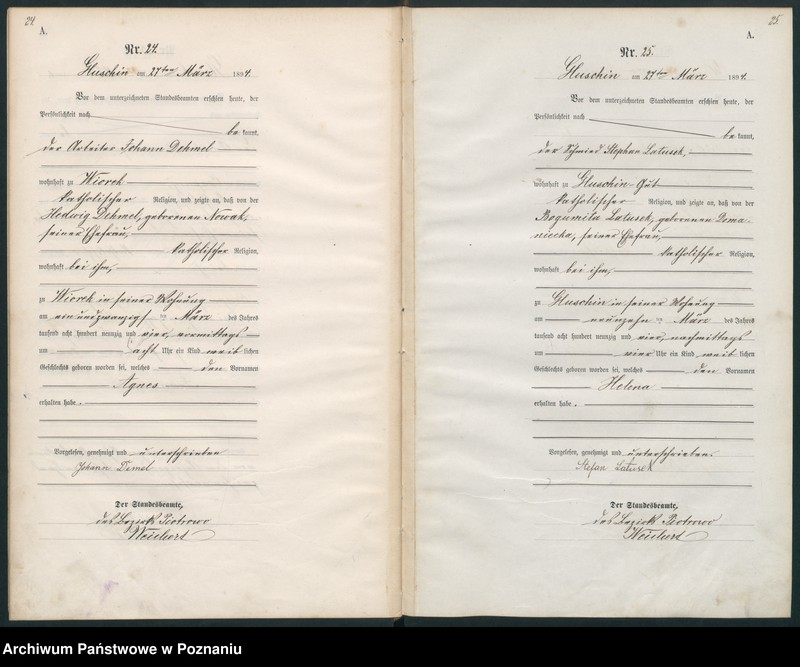 24.
A.
Nr. 24.
Gluschin am 27ten März 1894.
Vor dem unterzeichneten Standesbeamten erschien heute, der
Persönlichkeit nach
bekannt,
der Arbeiter Johann Dehmel
wohnhaft zu Wiorek
katholischer Religion, und zeigte an, daß von der
Hedwig Dehmel, geborenen Nowak,
seiner Ehefrau,
katholischer Religion,
wohnhaft bei ihm,
zu Wiorek in seiner Wohnung
am einundzwanzigst en März des Jahres
tausend acht hundert neunzig und vier, vormittags
um acht Uhr ein Kind weiblichen
Geschlechts geboren worden sei, welches den Vornamen
Agnes
erhalten habe.
Vorgelesen, genehmigt und unterschrieben
Johann Demel
Der Standesbeamte,
des Bezirks Piotrowo
Weichert
25.
A.
Nr. 25.
Gluschin am 27ten März 1894.
Vor dem unterzeichneten Standesbeamten erschien heute, der
Persönlichkeit nach
bekannt,
der Schmied Stephan Latusek,
wohnhaft zu Gluschin-Gut
katholischer Religion, und zeigte an, daß von der
Bogumila Latusek, geborenen Doma-
niecka, seiner Ehefrau,
katholischer Religion,
wohnhaft bei ihm,
zu Gluschin in seiner Wohnung
am neunzehn ten März des Jahres
tausend acht hundert neunzig und vier, nachmittags
um vier Uhr ein Kind weiblichen
Geschlechts geboren worden sei, welches den Vornamen
Helena
erhalten habe.
Vorgelesen, genehmigt und unterschrieben.
Stefan Latusek
Der Standesbeamte,
des Bezirks Piotrowo
Weichert
Archiwum Państwowe w Poznaniu